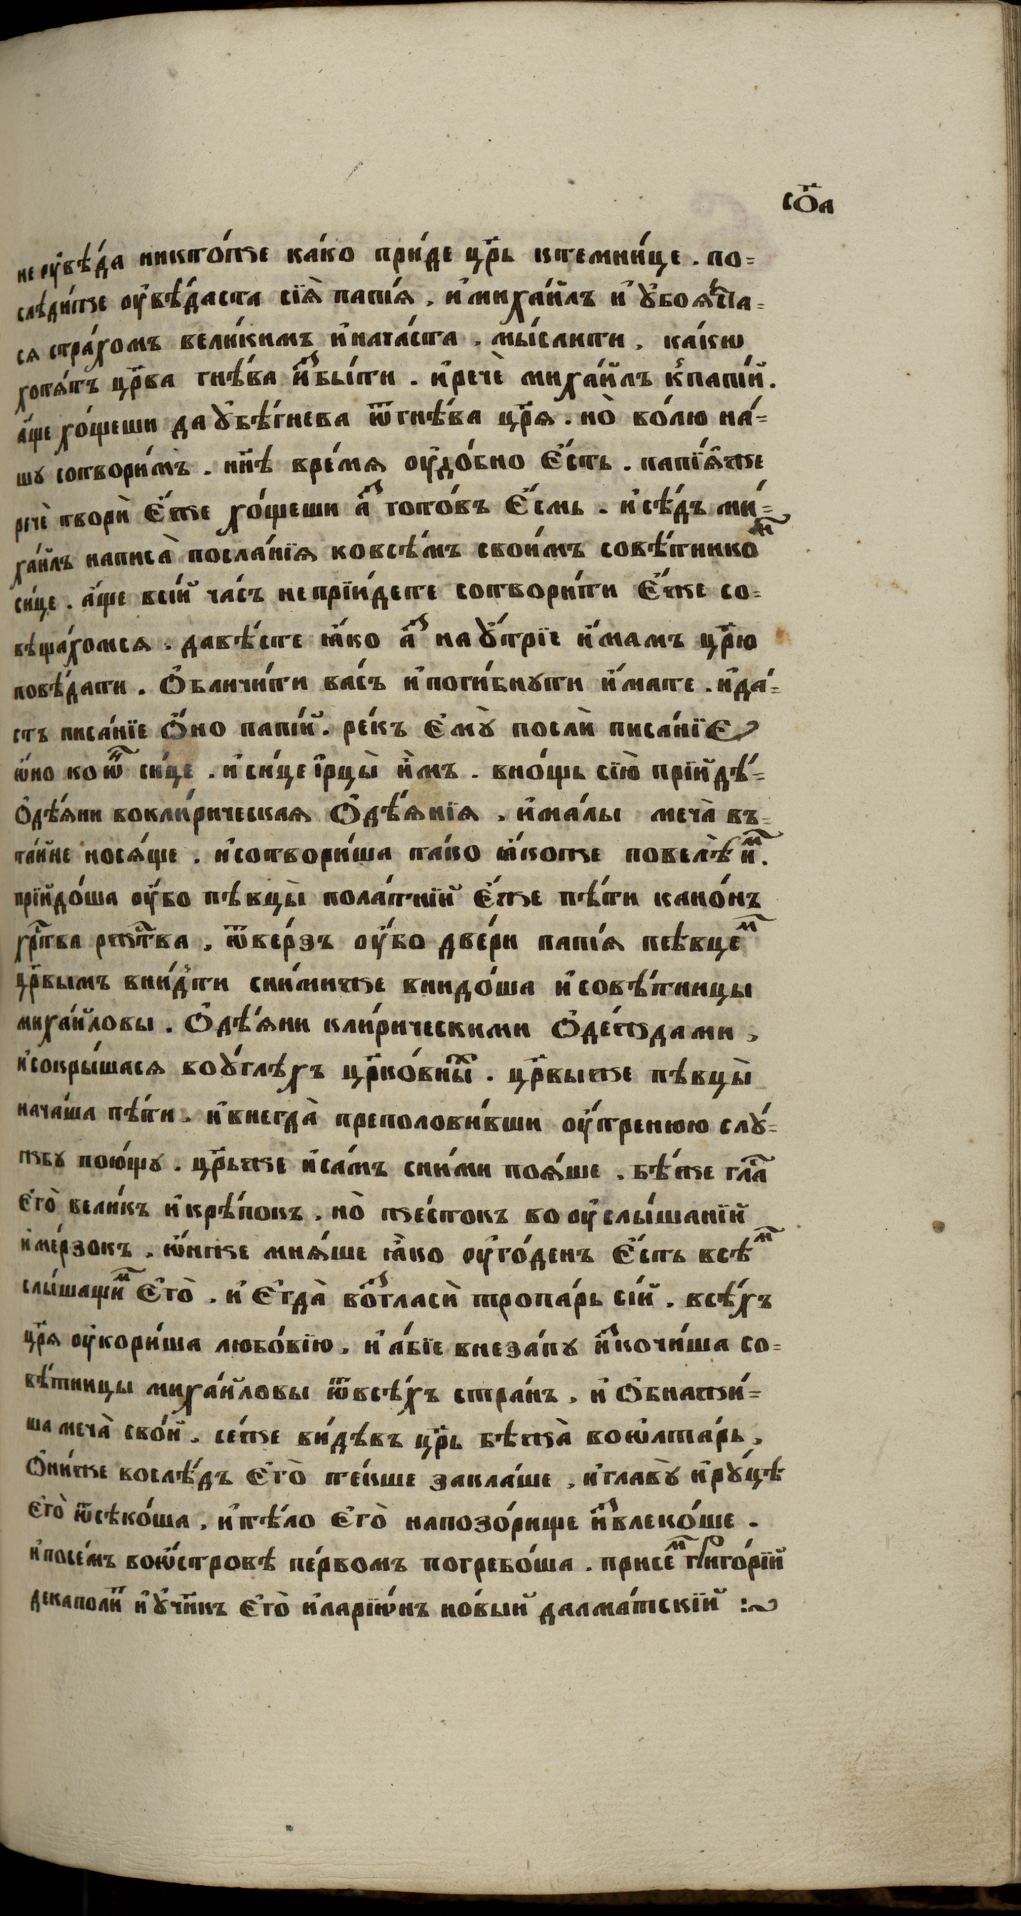 со҃а
не ѹ҆вѣ́да никто́же ка́ко прїи́де цр҃ь ктемни́це . по=
слѣди́же ѹ҆вѣ́даста сїѧ̀ папі́ѧ , и҆ миха́йлъ и҆ ꙋ҆боѧ́ста=
сѧ стра́хомъ вели́кимъ и҆нача́ста , мы́слити , ка́кѡ
хотѧ́тъ цр҃ва гнѣ́ва и҆збы́ти . и҆речѐ миха́йлъ кпапі́й .
а҆́ще хо́щеши да ꙋ҆бѣ́гнева ѿгнѣ́ва цр҃ѧ . но̀ во́лю на́=
шꙋ сотвори́мъ . нн҃ѣ вре́мѧ ѹ҆до́бно є҆́сть . папі́ѧже
речѐ творѝ є҆́же хо́щеши а҆́з гото́въ є҆́смь . и҆сѣ́дъ ми=
ха́йлъ написа̀ посла́нїѧ ковсѣ́мъ свои́мъ совѣ́тникоⷨ
си́це . а҆́ще всі́й ча́съ непрїи́дете сотвори́ти є҆́же со=
вѣща́хомсѧ . давѣ́сте ꙗ҆́ко а҆́з на ꙋ҆́трїе и҆́мамъ цр҃ю
повѣ́дати . ѻ҆бличи́ти ва́съ и҆поги́бнꙋти и҆́мате . и҆да́=
стъ писа́нїе ѻ҆́но папі́й . ре́къ є҆мꙋ̀ послѝ писа́нїе
ѡ҆́но ко ѿ си́це . и҆си́це рцы̀ и҆̀мъ . вно́щь сїю̀ прїи́дѣ=
ѻ҆дѣ́ѧни воклири́ческаѧ ѻ҆дѣѧ́нїѧ , и҆ма́лы меча̀ въ=
та́йне носѧ́ще . и҆сотвори́ша та́ко ꙗ҆́коже повелѣ̀ и҆ⷨ .
прїидо́ша ѹ҆́бо пѣвцы̀ пола́тнїй є҆́же пѣ́ти кано́нъ
хрⷭ҇тва ржⷭ҇тва , ѿве́рзъ ѹ҆́бо две́ри папі́ѧ пѣвцеⷨ
цр҃вымъ вни́дти сни́миже внидо́ша и҆совѣ́тницы
миха́йловы . ѻ҆дѣ́ѧни клири́ческими ѻ҆де́ждами ,
и҆сокры́шасѧ воꙋ҆́глѣхъ цр҃ко́вныⷯ . цр҃выже пѣвцы̀
нача́ша пѣ́ти . и҆внегда̀ преполови́вши ѹ҆́тренюю слꙋ́=
жбꙋ пою́щꙋ . цр҃ьже и҆са́мъ сни́ми поѧ́ше . бѣ́же глⷭ҇а
є҆гѡ̀ вели́къ и҆крѣ́покъ , но̀ же́стокъ во ѹ҆слы́шанїй
и҆ме́рзокъ , ѡ҆́нже мнѧ́ше ꙗ҆́ко ѹ҆го́денъ є҆́сть всѣⷨ
слы́шащиⷨ є҆го̀ . и҆ є҆гда̀ возгласѝ тропа́рь сі́й . всѣ́хъ
цр҃ѧ ѹ҆кори́ша любо́вїю , и҆ а҆́бїе внеза́пꙋ и҆скочи́ша со=
вѣ́тницы миха́йловы ѿвсѣ́хъ стра́нъ , и҆ ѻ҆бнажи́=
ша меча̀ своѝ . се́же ви́дѣвъ цр҃ь бѣжа̀ воѡ҆лта́рь ,
ѻ҆ни́же вослѣ́дъ є҆го̀ те́кше закла́ше , и҆главꙋ̀ и҆рꙋ́цѣ
є҆го̀ ѿсѣко́ша , и҆тѣ́ло є҆го̀ напозо́рище и҆звлеко́ше .
и҆посе́мъ воѡ҆́стровѣ пе́рвомъ погребо́ша . присеⷨ григо́рїй
декаполи́т и҆ ᲂу҆чн҃къ є҆го̀ и҆ларїѡ́нъ но́вый далма́тскїй :~